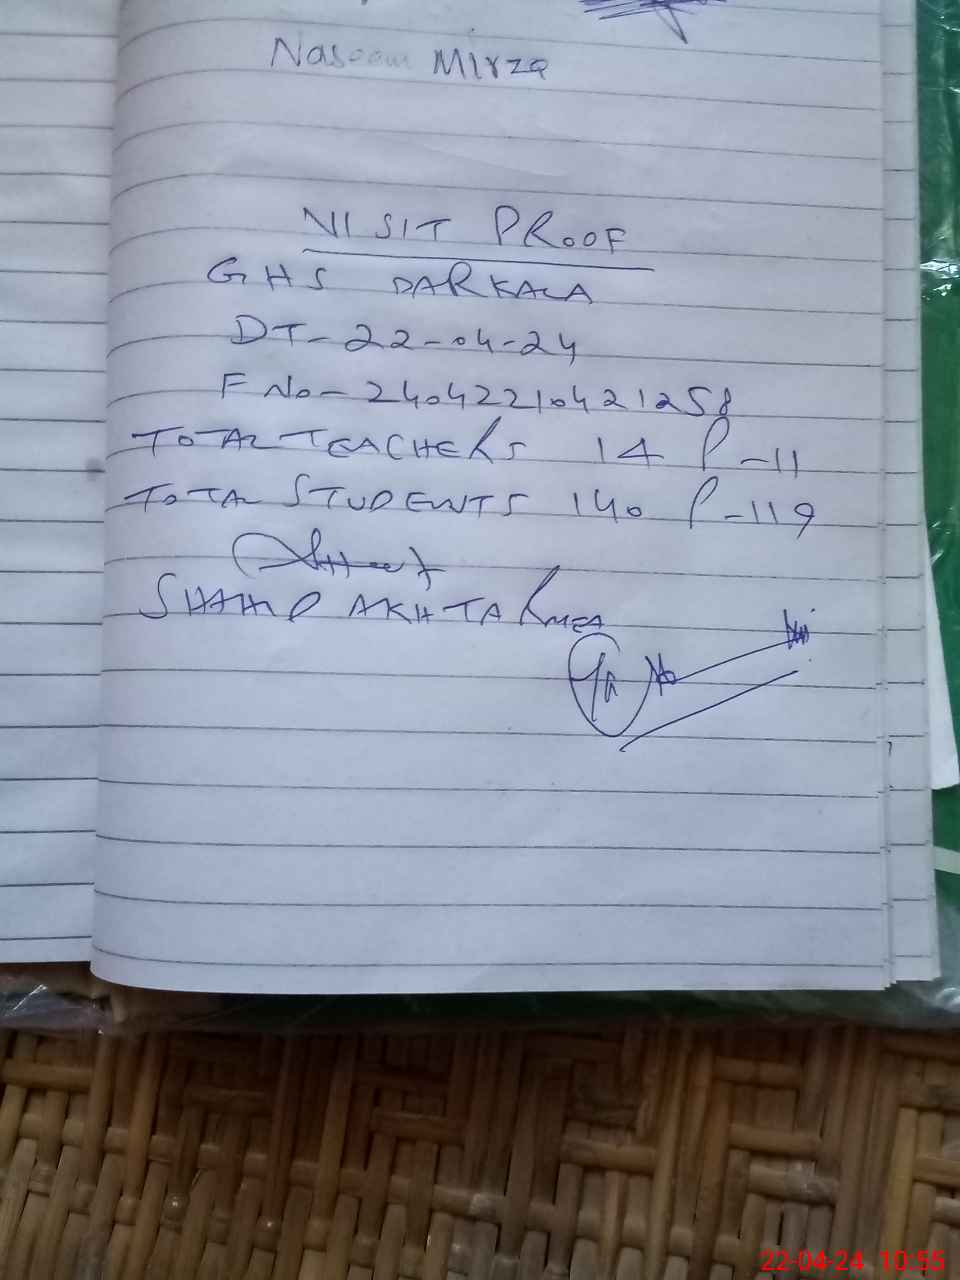 Naseem Mirza
VISIT PROOF
GHS DARKALA
DT-22-04-24
F No-24042210421258
TOTAL TEACHERS 14 P-11
TOTAL STUDENTS 140 P-119
SHAHID AKHTAR MEA
22-04-24 10:55